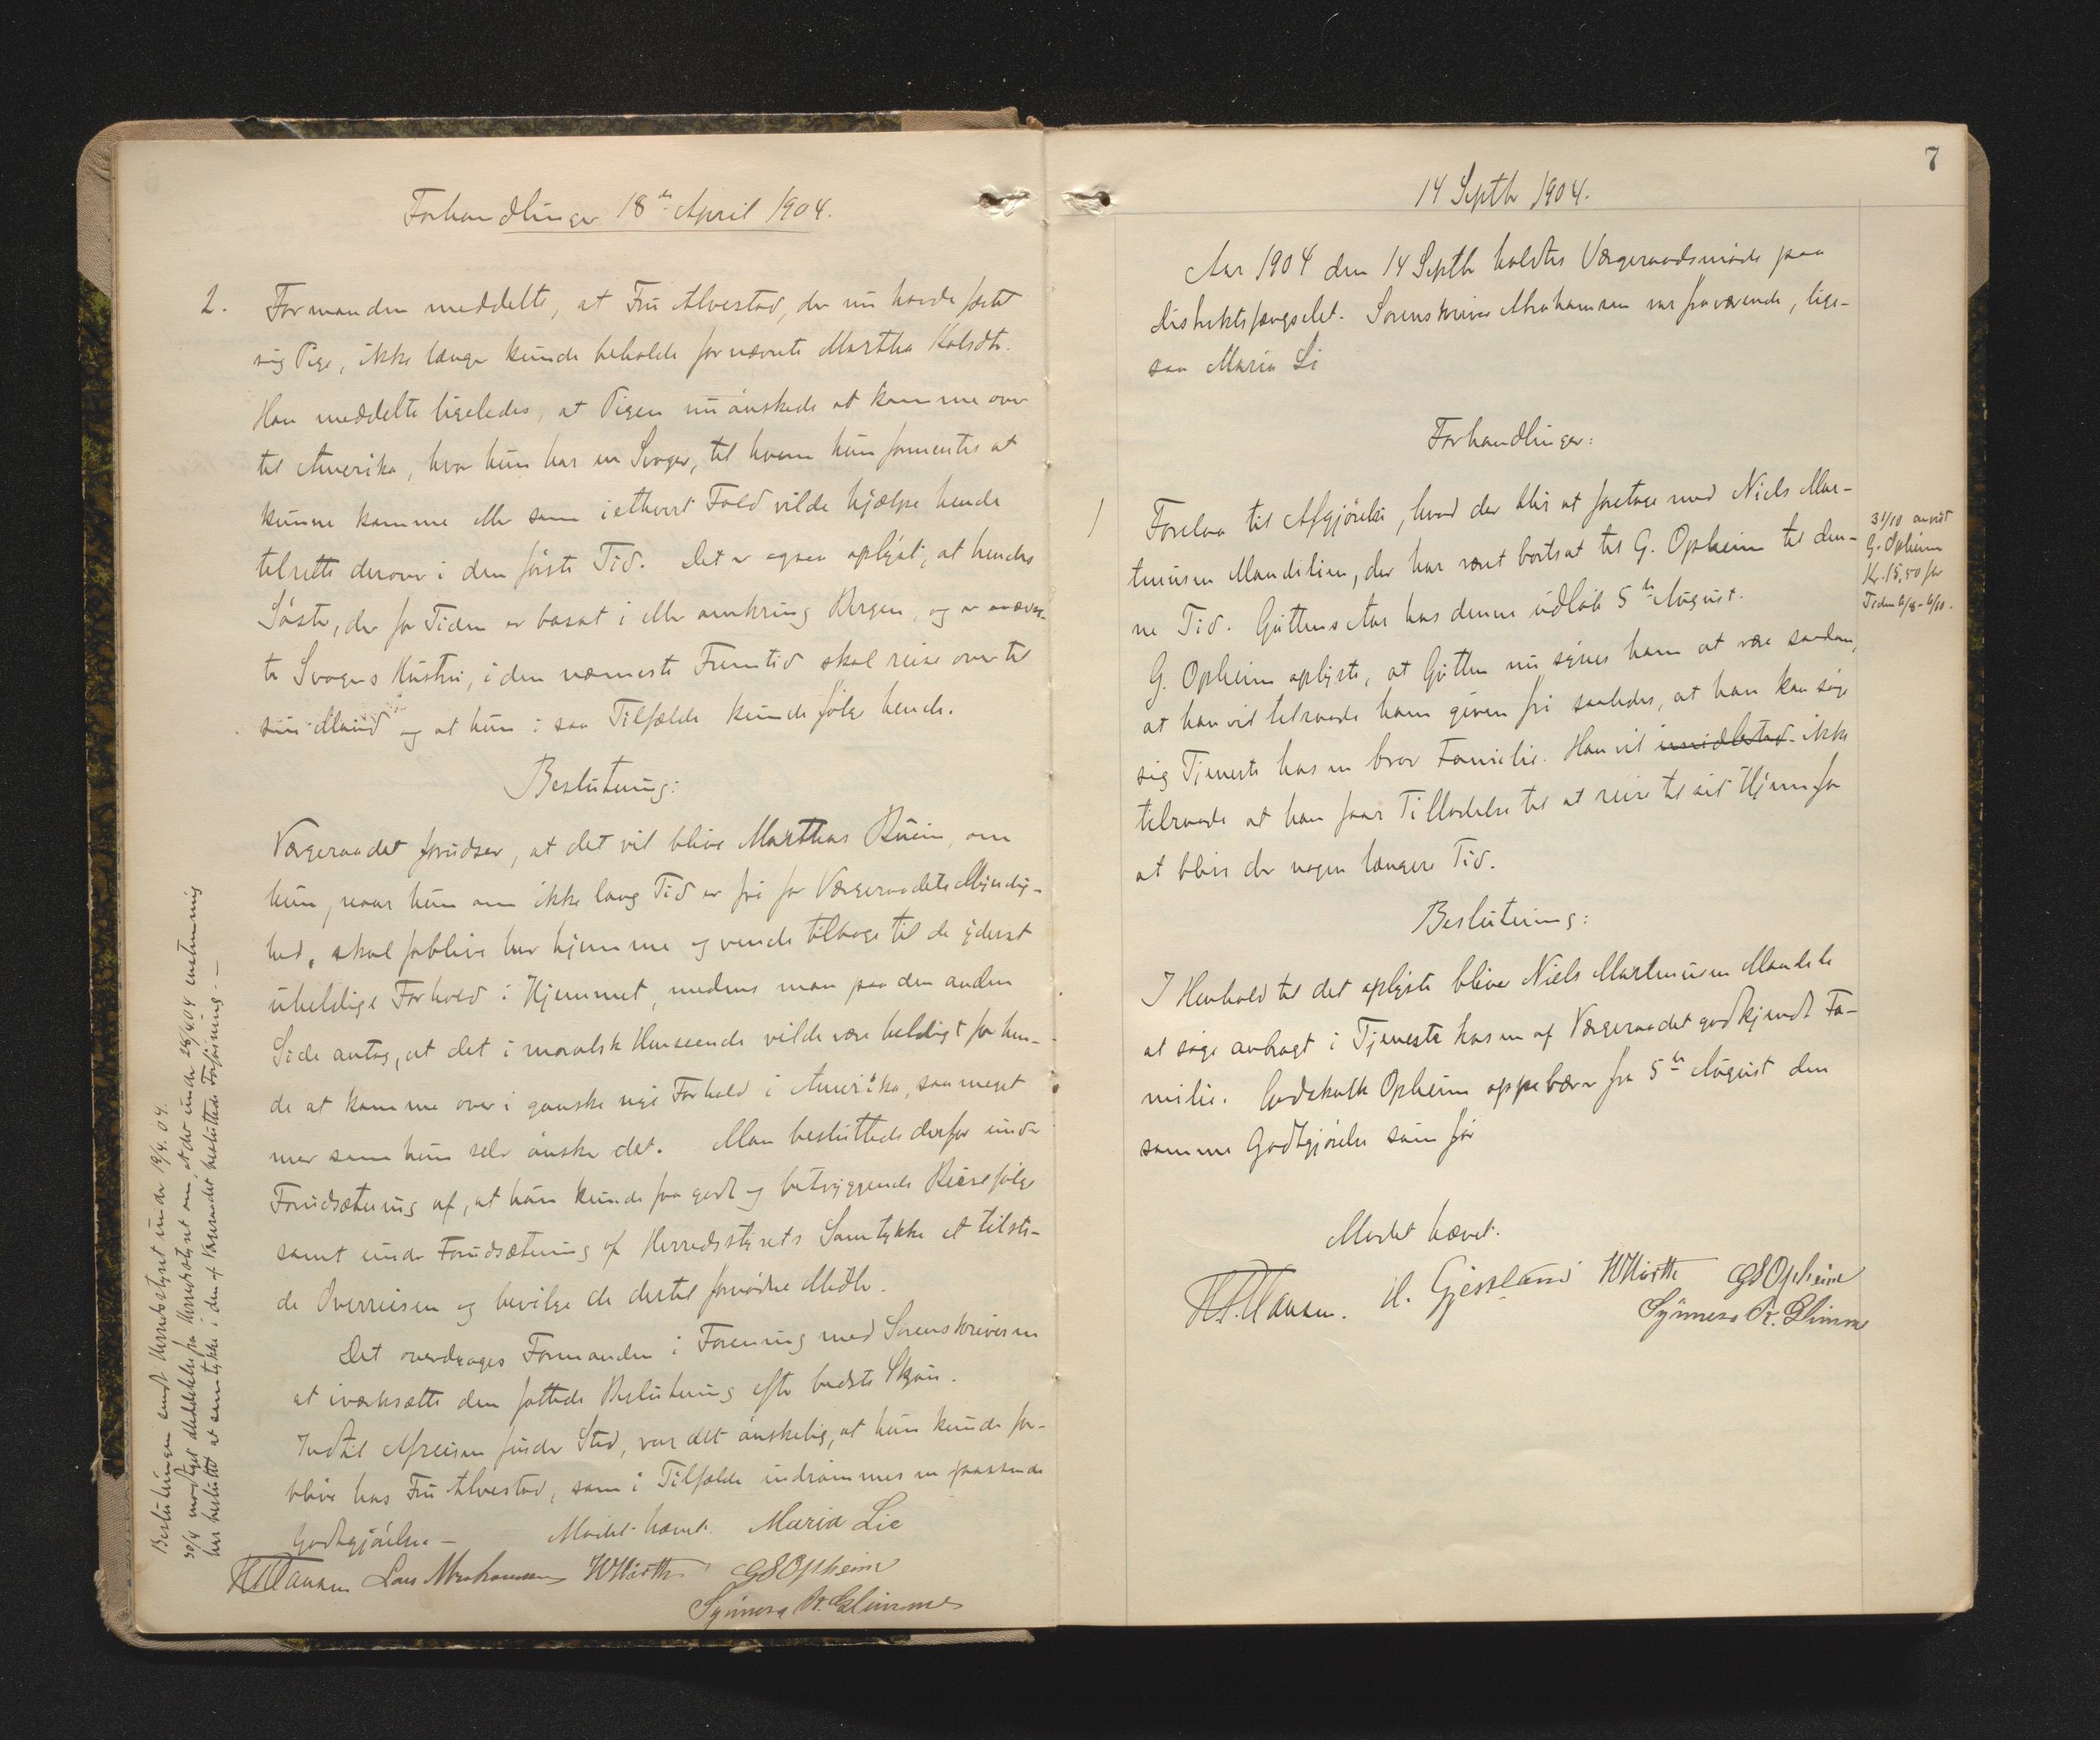 Forhandlinger 18de April 1904.
2. Formanden meddelte, at Fru Alvestad, der nu havde fæstet
sig Pige, ikke længer kunde beholde fornævnte Martha Kolsdtr.
Han meddelte ligeledes, at Pigen nu ønskede at komme over
til Amerika, hvor hun har en Svoger, til hvem hun formentes at
kunne komme eller som iethvert Fald vilde hjælpe hende
tilrette derover i den første Tid. Det er ogsaa oplyst, at hendes
Søster, der for Tiden er bosat i eller omkring Bergen, og er nævn-
te Svogers Hustru, i den nærmeste Fremtid skal reise over til
sin Mand og at hun i saa Tilfælde kunde følge hende.
Beslutning:
Værgeraadet forudser, at det vil blive Marthas Ruin, om
hun, naar hun om ikke lang Tid er fri for Værgeraadets Myndig-
hed, skal forblive her hjemme og vende tilbage til de yderst
uheldige Forhold i Hjemmet, medens man paa den anden
Side antog, at det i moralsk Henseende vilde være heldigt for hen-
de at komme over i ganske nye Forhold i Amerika, saa meget
mer som hun selv ønsker det. Man besluttede derfor under
Forudsætning af, at hun kunde faa godt og betryggende Reisefølge
samt under Forudsætning af Herredsstyrets Samtykke at tilste-
de Overreisen og bevilge de dertil fornødne Midler.
Det overdrages Formanden i Forening med Sorenskriveren
at iværksætte den fattede Beslutning efter bedste Skjøn.
Indtil Afreisen finder Sted, var det ønskelig, at hun kunde for-
blive hos Fru Alvestad, som i Tilfælde indrømmes en passende
Godtgjørelse — Mødet hævet. Maria Lie
H. Hansen Lars Abrahamsen WHirth GSOpheim
Synneva Br. Glimme
Beslutningen sendt Herredsstyret under 19/4. 04.
30/4 modtaget Meddelelse fra Herredsstyret om, at det under 28/4 04 enstemmig
har besluttet at samtykke i den af Værgeraadet besluttede Forføining —
7
14 Septbr 1904.
Aar 1904 den 14 Septbr holdtes Værgeraadsmøde paa
distriktsfængselet. Sorenskriver Abrahamsen var fraværende, lige-
saa Maria Li
Forhandlinger:
1 Forelaa til Afgjørelse, hvad der blir at foretage med Niels Mar-
tinusen Mandelien, der har været bortsat til G. Opheim til den-
ne Tid. Guttens Aar hos denne udløb 5te August.
G. Opheim oplyste, at Gutten nu synes ham at være saadan,
at han vil tilraade ham given fri saaledes, at han kan søge
sig Tjeneste hos en brav Familie. Han vil imidlertid ikke
tilraade at han faar Tilladelse til at reise til sit Hjem for
at blive der nogen længere Tid.
31/10 anvist
G. Opheim
Kr. 15,50 for
Tiden 6/8 - 6/10.
Beslutning:
I Henhold til det oplyste bliver Niels Martinusen Mandele
at søge anbragt i Tjeneste hos en af Værgeraadet godkjendt Fa-
milie. Godskalk Opheim oppebærer fra 5te August den
samme Godtgjørelse som før
Mødet hævet.
H. Hansen. H. Gjesteland WHirth GSOpheim
Synneva Br. Glimme